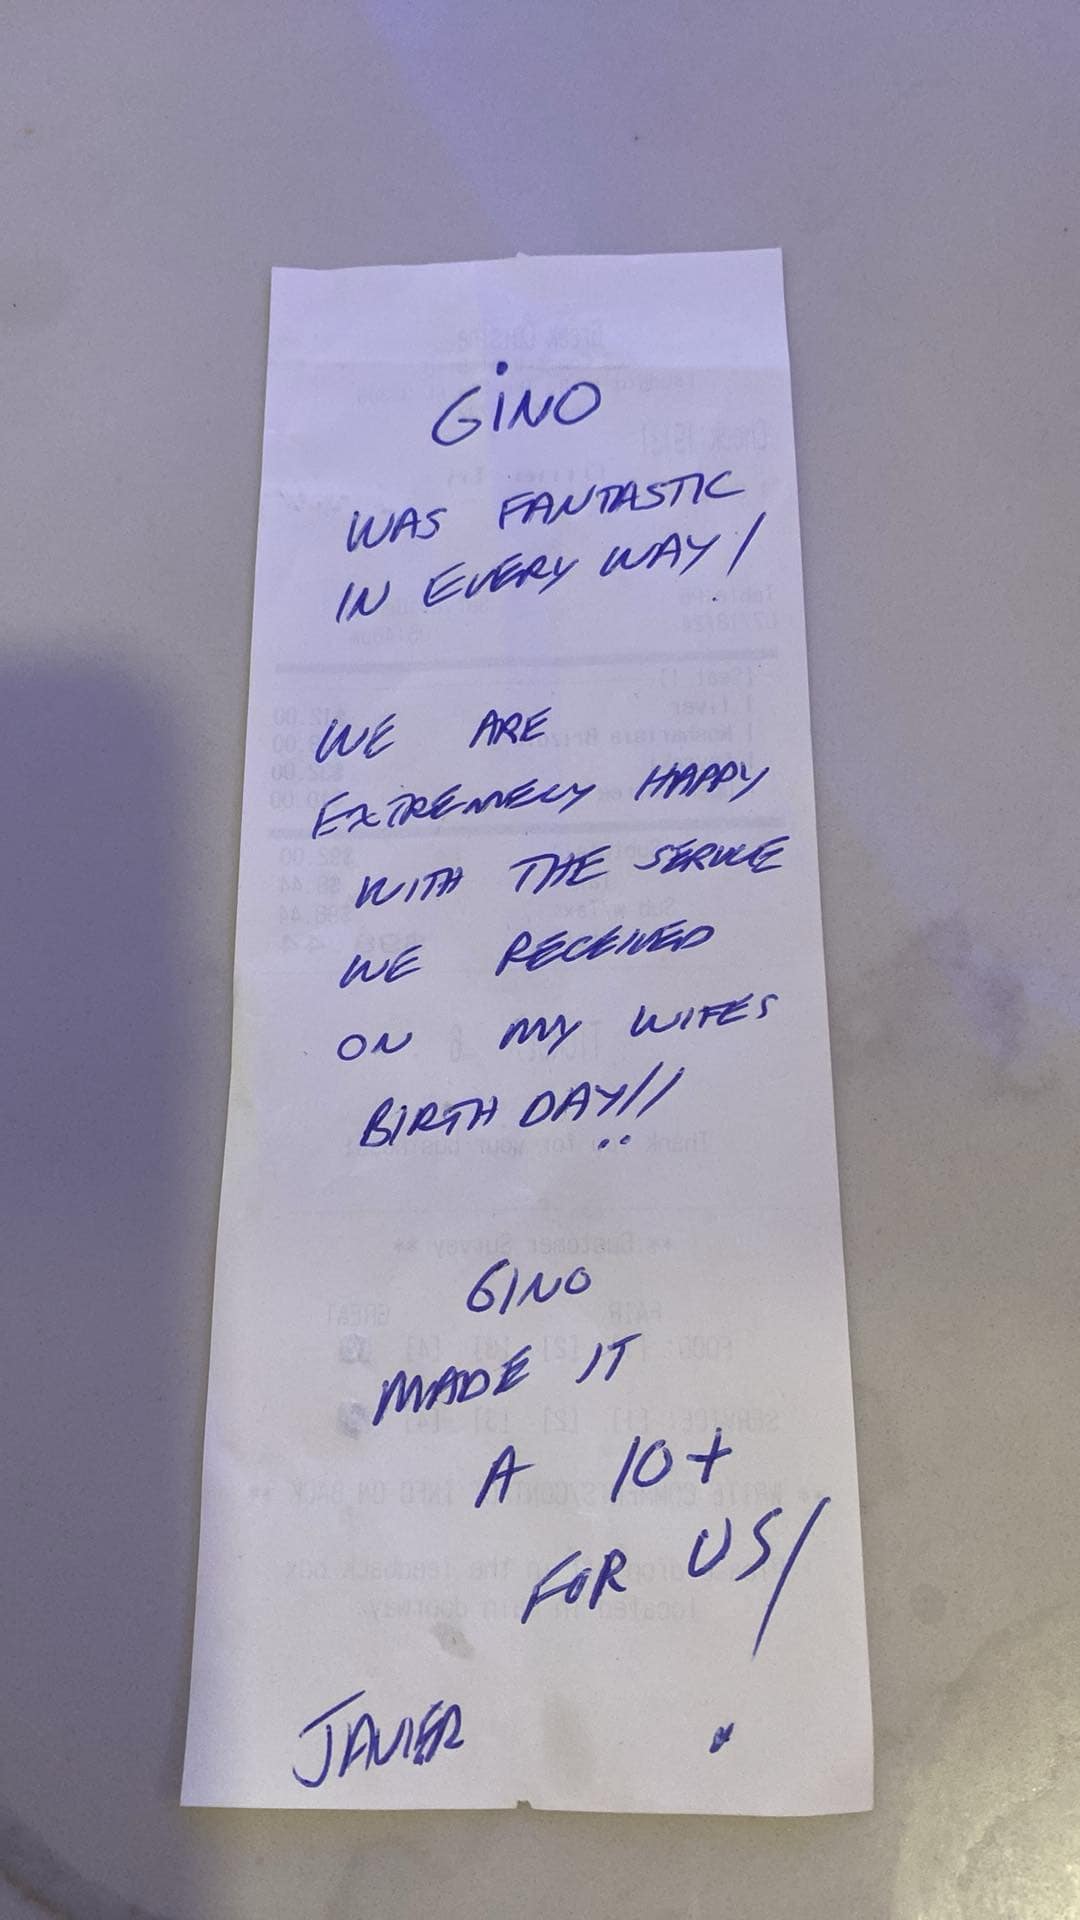 GINO
WAS FANTASTIC
IN EVERY WAY!
WE ARE
EXTREMELY HAPPY
WITH THE SERVICE
WE RECEIVED
ON MY WIFES
BIRTHDAY!!
GINO
MADE IT
A 10+
FOR US!
JAVIER